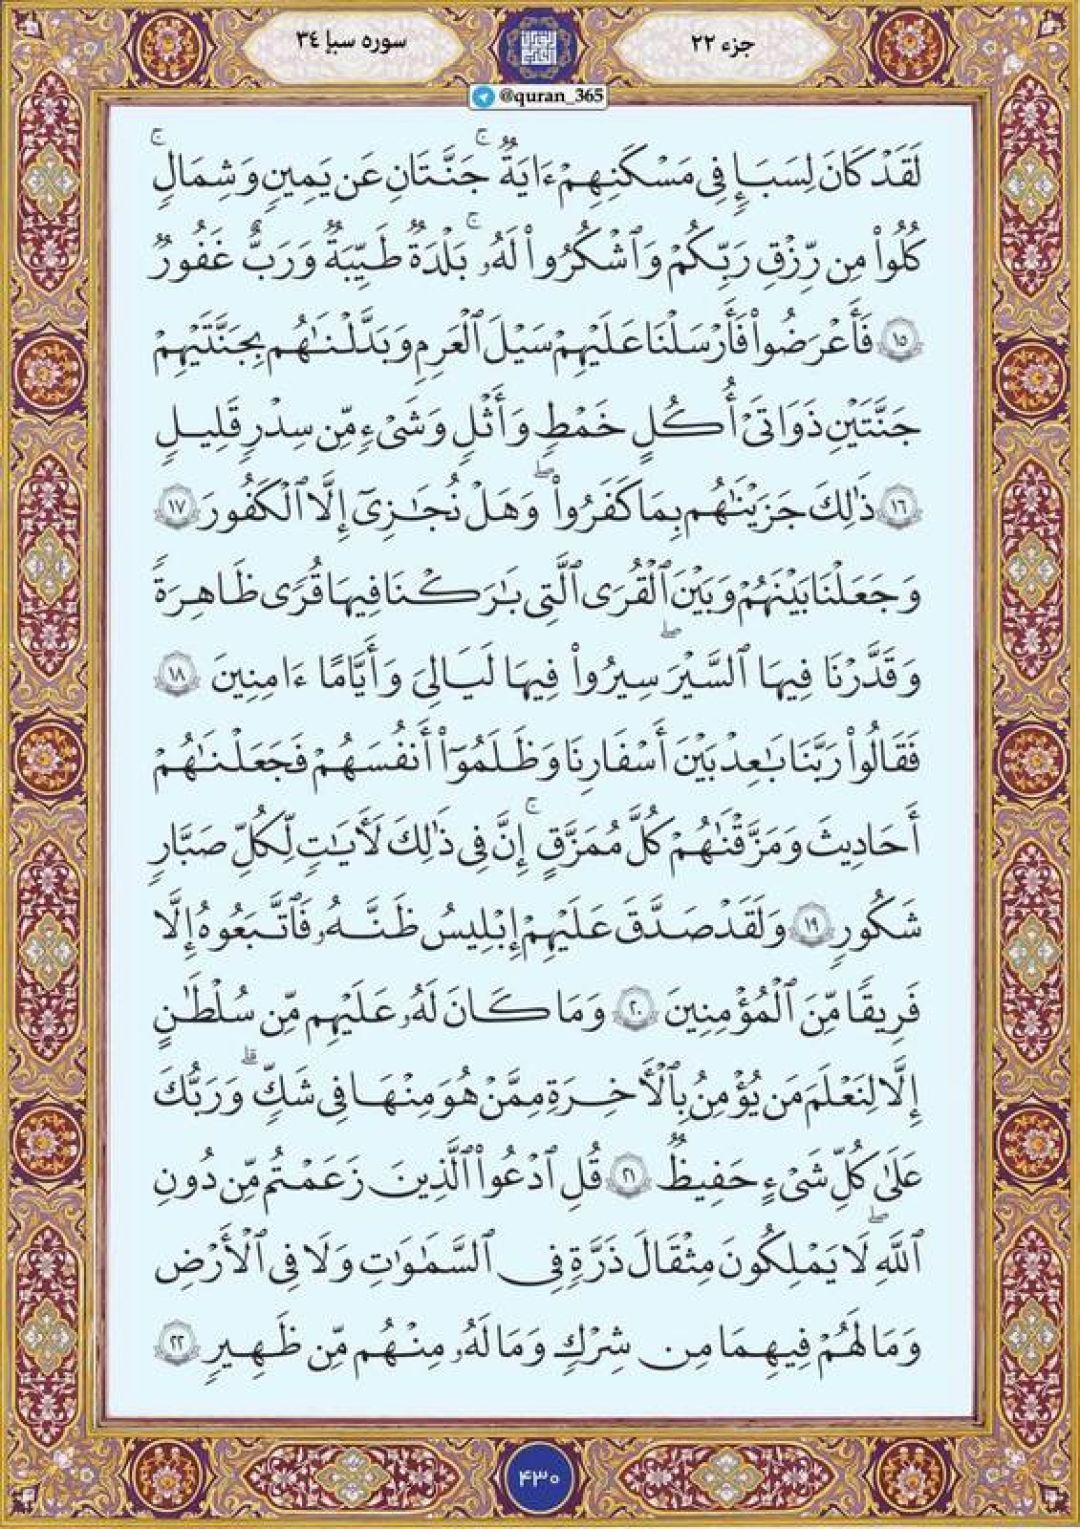 جزء ۲۲
سوره سبإ ۳٤
@quran_365
لَقَدْ كَانَ لِسَبَإٍ فِى مَسْكَنِهِمْ ءَايَةٌ ۖ جَنَّتَانِ عَن يَمِينٍ وَشِمَالٍ ۖ
كُلُوا۟ مِن رِّزْقِ رَبِّكُمْ وَٱشْكُرُوا۟ لَهُۥ ۚ بَلْدَةٌ طَيِّبَةٌ وَرَبٌّ غَفُورٌ
۱٥ فَأَعْرَضُوا۟ فَأَرْسَلْنَا عَلَيْهِمْ سَيْلَ ٱلْعَرِمِ وَبَدَّلْنَـٰهُم بِجَنَّتَيْهِمْ
جَنَّتَيْنِ ذَوَاتَىْ أُكُلٍ خَمْطٍ وَأَثْلٍ وَشَىْءٍ مِّن سِدْرٍ قَلِيلٍ
۱٦ ذَٰلِكَ جَزَيْنَـٰهُم بِمَا كَفَرُوا۟ ۖ وَهَلْ نُجَـٰزِىٓ إِلَّا ٱلْكَفُورَ ۱۷
وَجَعَلْنَا بَيْنَهُمْ وَبَيْنَ ٱلْقُرَى ٱلَّتِى بَـٰرَكْنَا فِيهَا قُرًى ظَـاهِرَةً
وَقَدَّرْنَا فِيهَا ٱلسَّيْرَ ۖ سِيرُوا۟ فِيهَا لَيَالِىَ وَأَيَّامًا ءَامِنِينَ ۱۸
فَقَالُوا۟ رَبَّنَا بَـٰعِدْ بَيْنَ أَسْفَارِنَا وَظَلَمُوٓا۟ أَنفُسَهُمْ فَجَعَلْنَـٰهُمْ
أَحَادِيثَ وَمَزَّقْنَـٰهُمْ كُلَّ مُمَزَّقٍ ۚ إِنَّ فِى ذَٰلِكَ لَـَٔايَـٰتٍ لِّكُلِّ صَبَّارٍ
شَكُورٍ ۱۹ وَلَقَدْ صَدَّقَ عَلَيْهِمْ إِبْلِيسُ ظَنَّهُۥ فَٱتَّبَعُوهُ إِلَّا
فَرِيقًا مِّنَ ٱلْمُؤْمِنِينَ ۲۰ وَمَا كَانَ لَهُۥ عَلَيْهِم مِّن سُلْطَـٰنٍ
إِلَّا لِنَعْلَمَ مَن يُؤْمِنُ بِٱلْـَٔاخِرَةِ مِمَّنْ هُوَ مِنْهَا فِى شَكٍّ ۗ وَرَبُّكَ
عَلَىٰ كُلِّ شَىْءٍ حَفِيظٌ ۲۱ قُلِ ٱدْعُوا۟ ٱلَّذِينَ زَعَمْتُم مِّن دُونِ
ٱللَّهِ ۖ لَا يَمْلِكُونَ مِثْقَالَ ذَرَّةٍ فِى ٱلسَّمَـٰوَٰتِ وَلَا فِى ٱلْأَرْضِ
وَمَا لَهُمْ فِيهِمَا مِن شِرْكٍ وَمَا لَهُۥ مِنْهُم مِّن ظَهِيرٍ ۲۲
۴۳۰